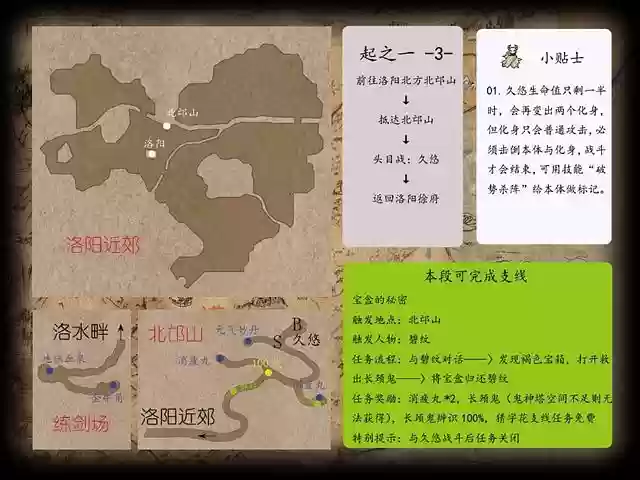 北邙山
洛阳
洛阳近郊
洛水畔
练剑场
北邙山
元气妙丹
消疲丸
B
S
久悠
100
洛阳近郊
起之一 -3-
前往洛阳北方北邙山
抵达北邙山
头目战：久悠
返回洛阳徐府
小贴士
01. 久悠生命值只剩一半
时，会再变出两个化身，
但化身只会普通攻击，必
须击倒本体与化身，战斗
才会结束，可用技能“破
势杀阵”给本体做标记。
本段可完成支线
宝盒的秘密
触发地点：北邙山
触发人物：碧纹
任务流程：与碧纹对话——〉发现褐色宝箱，打开救
出长颈鬼——〉将宝盒归还碧纹
任务奖励：消疲丸*2，长颈鬼（鬼神塔空间不足则无
法获得），长颈鬼辨识 100%，猜字花支线任务免费
特别提示：与久悠战斗后任务关闭